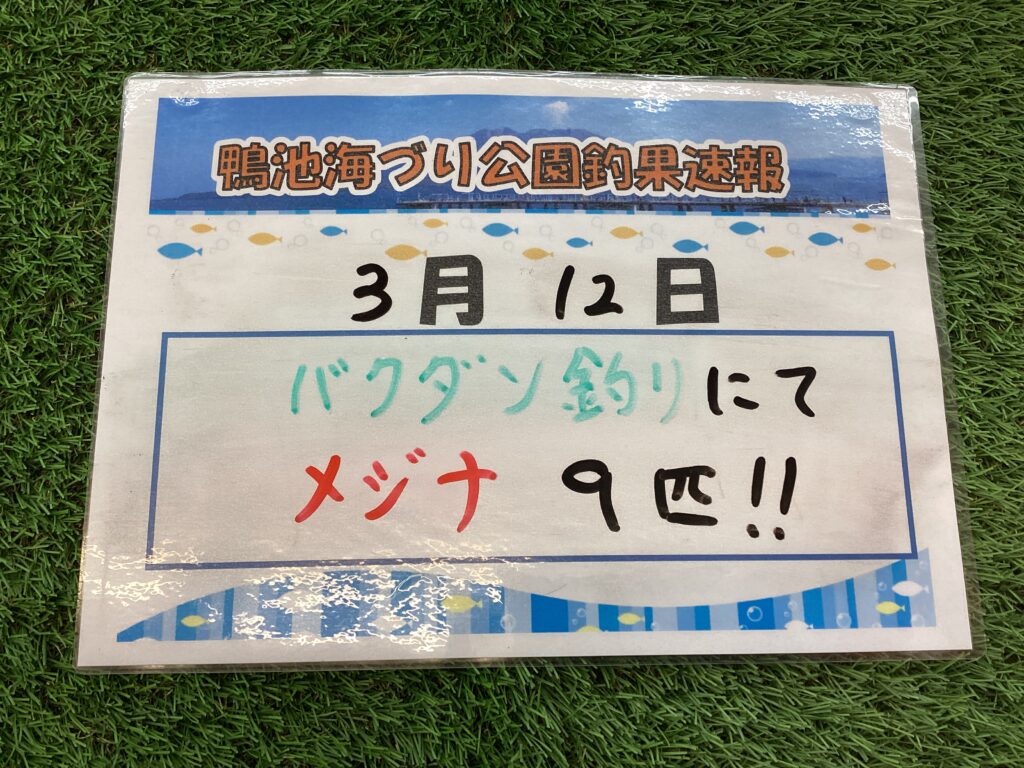 鴨池海づり公園釣果速報
3月 12日
バクダン釣りにて
メジナ 9匹!!